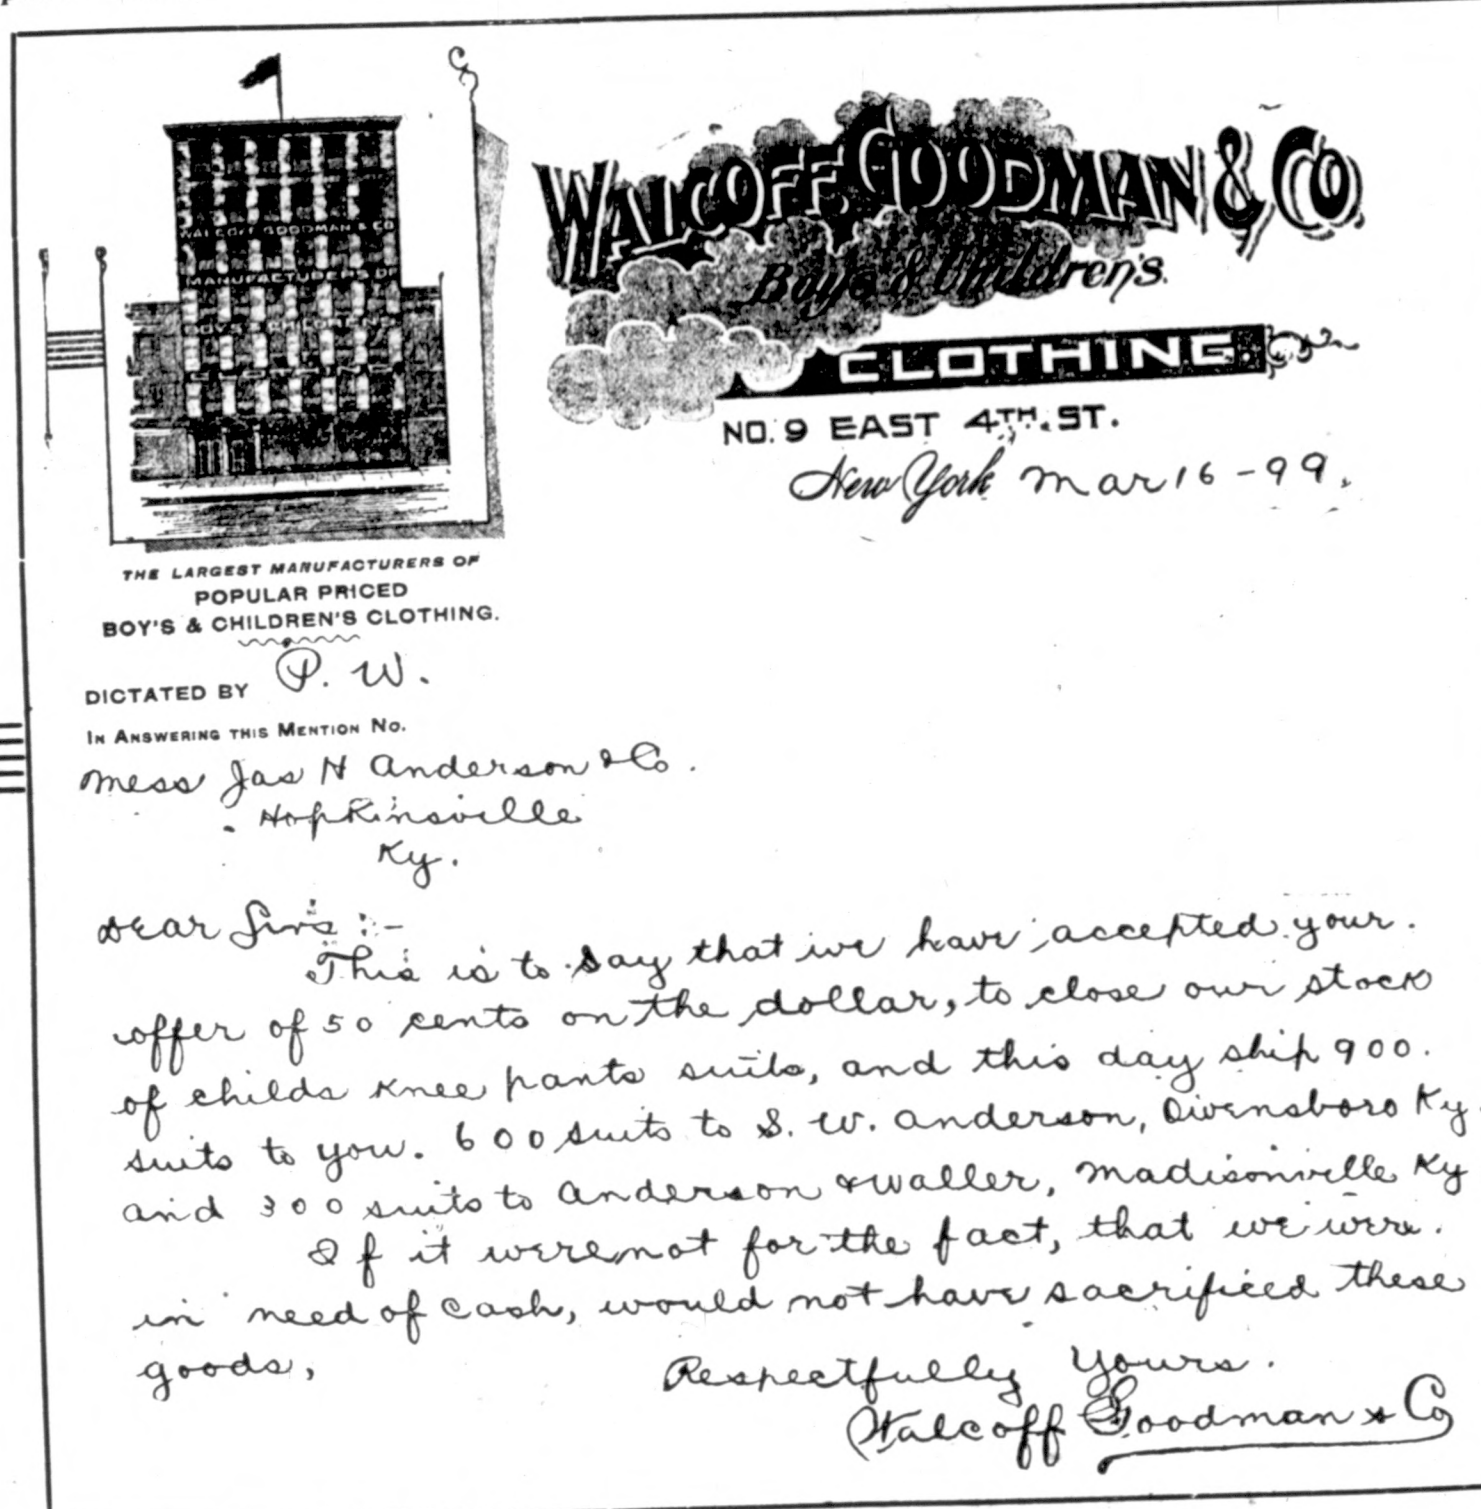 WALCOFF, GOODMAN & CO.
Boys & Children's.
CLOTHING.
NO. 9 EAST 4TH. ST.
New York Mar 16 - 99.
WALCOFF GOODMAN & CO
MANUFACTURERS OF
BOYS & CHILDREN'S
CLOTHING
THE LARGEST MANUFACTURERS OF
POPULAR PRICED
BOY'S & CHILDREN'S CLOTHING.
DICTATED BY P. W.
IN ANSWERING THIS MENTION NO.
Mess Jas H Anderson & Co.
Hopkinsville
Ky.
Dear Sirs :-
This is to say that we have accepted your
offer of 50 cents on the dollar, to close our stock
of childs knee pants suits, and this day ship 900
suits to you. 600 suits to S. W. Anderson, Owensboro Ky.
and 300 suits to Anderson & Waller, Madisonville Ky
If it were not for the fact, that we were
in need of cash, would not have sacrificed these
goods,
Respectfully Yours.
Walcoff Goodman & Co